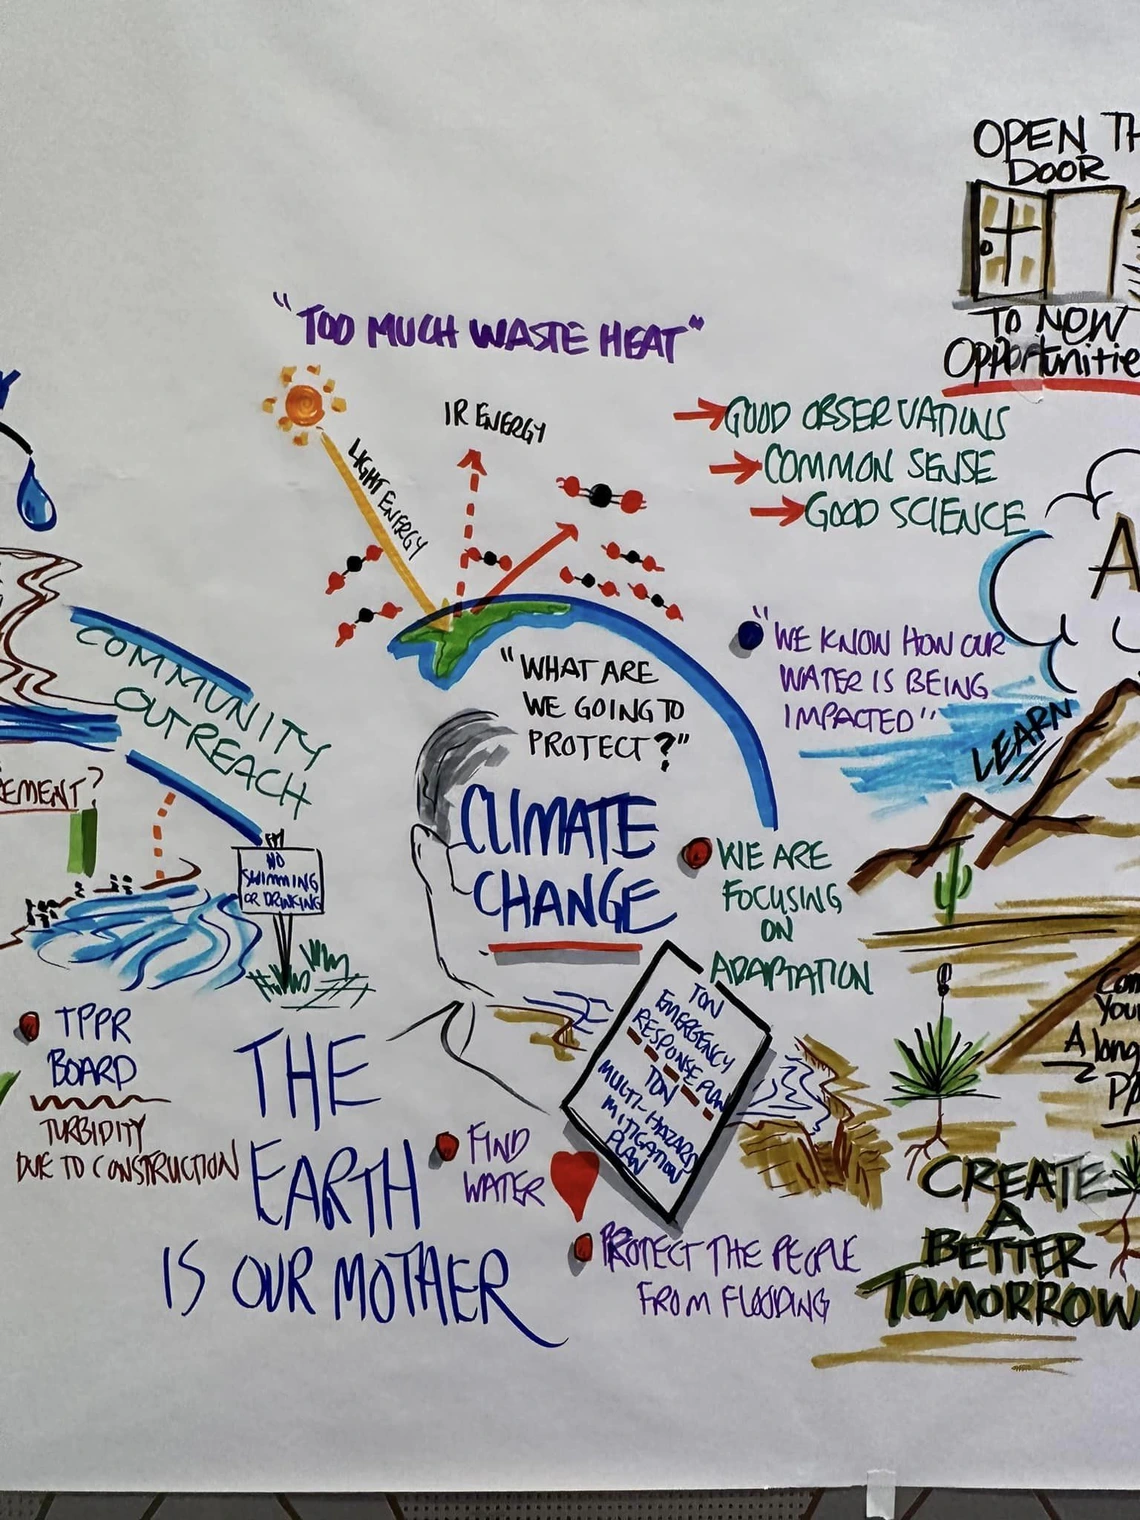 OPEN TH
DOOR
TO NEW
Opportunitie
"TOO MUCH WASTE HEAT"
LIGHT ENERGY
IR ENERGY
GOOD OBSERVATIONS
COMMON SENSE
GOOD SCIENCE
"WE KNOW HOW OUR
WATER IS BEING
IMPACTED"
LEARN
COMMUNITY
OUTREACH
EMENT?
NO
SWIMMING
OR DRINKING
"WHAT ARE
WE GOING TO
PROTECT?"
CLIMATE
CHANGE
WE ARE
FOCUSING
ON
ADAPTATION
TON
EMERGENCY
RESPONSE PLAN
TON
MULTI-HAZARD
MITIGATION
PLAN
TPPR
BOARD
TURBIDITY
DUE TO CONSTRUCTION
THE
EARTH
IS OUR MOTHER
FIND
WATER
PROTECT THE PEOPLE
FROM FLOODING
Your
A long
CREATE
A
BETTER
TOMORROW